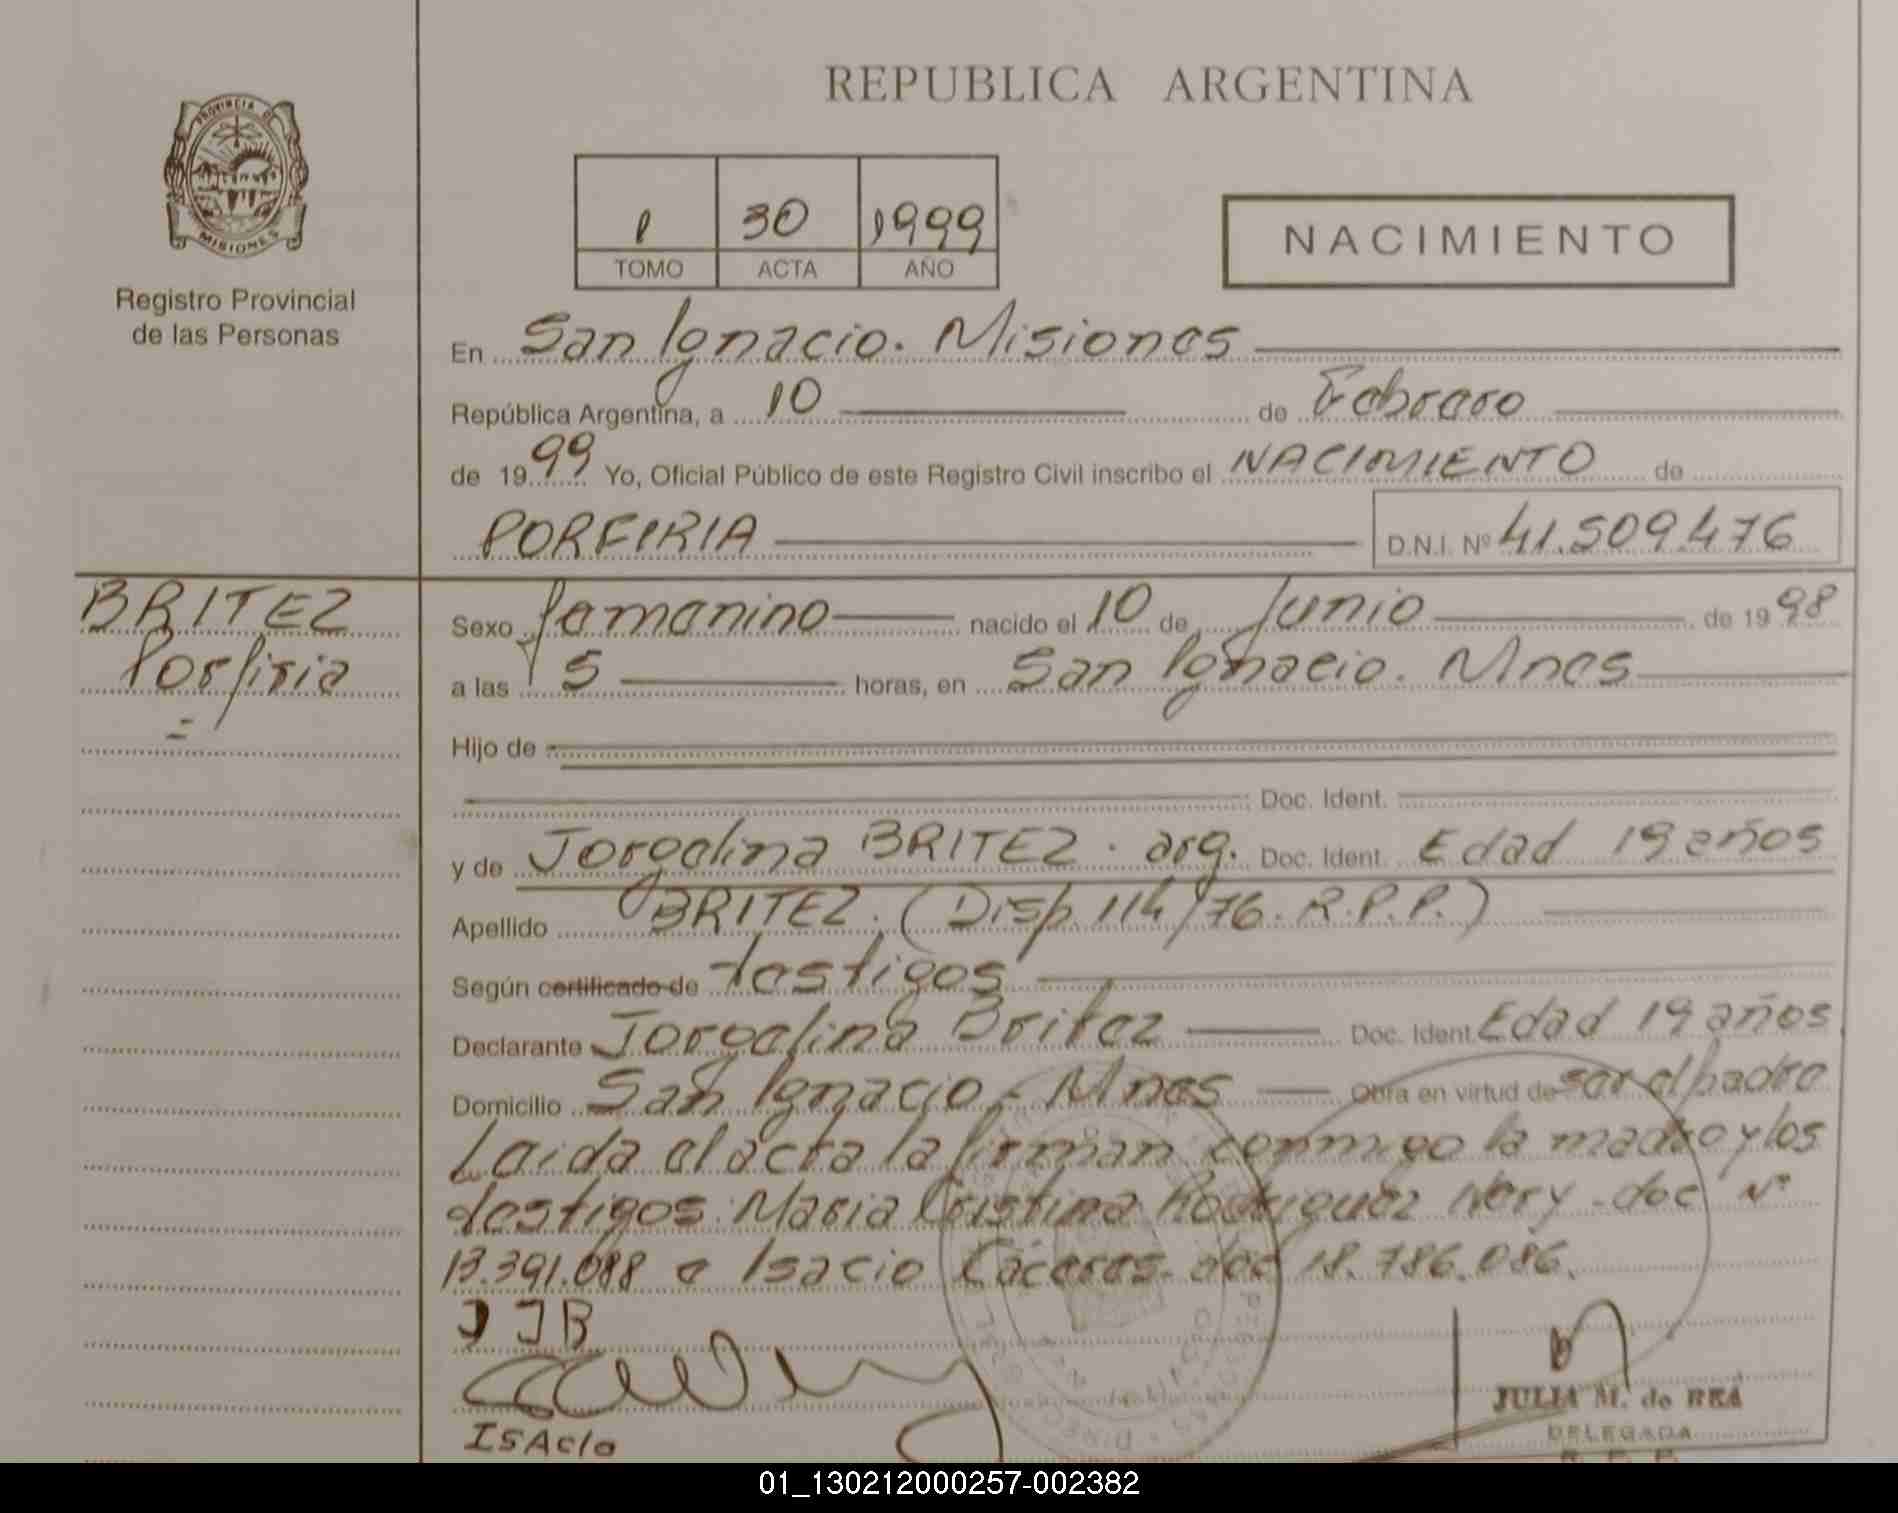 REPUBLICA ARGENTINA
PROVINCIA DE
MISIONES
Registro Provincial
de las Personas
1 30 1999
TOMO ACTA AÑO
NACIMIENTO
En San Ignacio. Misiones
República Argentina, a 10 de Febrero
de 1999 Yo, Oficial Público de este Registro Civil inscribo el NACIMIENTO de
PORFIRIA D.N.I. Nº 41.509.476
BRITEZ
Porfiria
Sexo femenino nacido el 10 de Junio de 1998
a las 5 horas, en San Ignacio. Mnes
Hijo de
Doc. Ident.
y de Jorgelina BRITEZ. arg. Doc. Ident. Edad 19 años
Apellido BRITEZ. (Disp. 114/76. R.P.P.)
Según certificado de testigos
Declarante Jorgelina Britez Doc. Ident. Edad 19 años
Domicilio San Ignacio - Mnes Obra en virtud de ser el padre
Leida el acta la firman conmigo la madre y los
testigos. Maria Cristina Rodriguez Nery - doc Nº
13.391.088 e Isacio Cáceres. doc 18.786.086.
J J B
IsAcio
JULIA M. de REA
DELEGADA
01_130212000257-002382